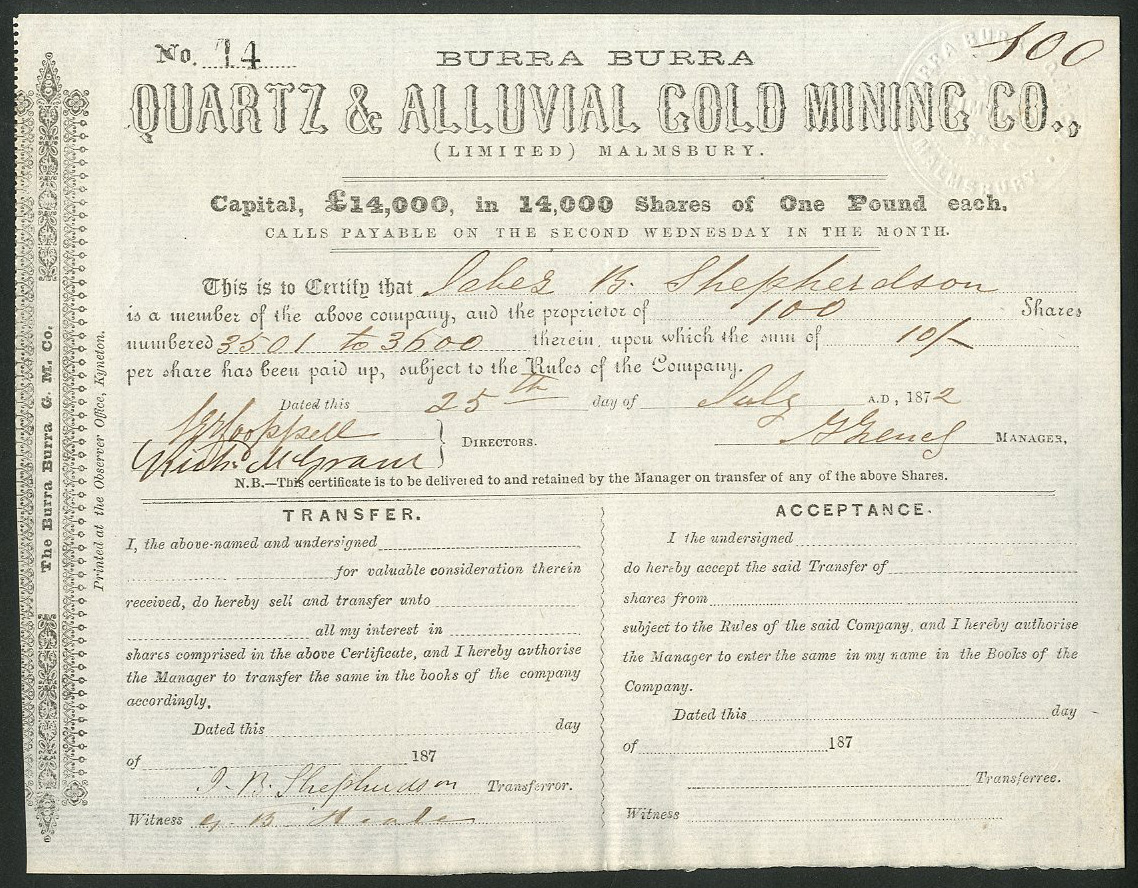 No. 14
100
BURRA BURRA
QUARTZ & ALLUVIAL GOLD MINING CO.,
(LIMITED) MALMSBURY.
Capital, £14,000, in 14,000 Shares of One Pound each.
CALLS PAYABLE ON THE SECOND WEDNESDAY IN THE MONTH.
This is to Certify that Jabez B. Shepherdson
is a member of the above company, and the proprietor of 100 Shares
numbered 3501 to 3600 therein, upon which the sum of 10/-
per share has been paid up, subject to the Rules of the Company.
Dated this 25th day of July A.D., 1872
DIRECTORS.
MANAGER,
N.B.—This certificate is to be delivered to and retained by the Manager on transfer of any of the above Shares.
TRANSFER.
I, the above-named and undersigned
for valuable consideration therein
received, do hereby sell and transfer unto
all my interest in
shares comprised in the above Certificate, and I hereby authorise
the Manager to transfer the same in the books of the company
accordingly.
Dated this day
of 187
J. B. Shepherdson Transferror.
Witness
ACCEPTANCE.
I the undersigned
do hereby accept the said Transfer of
shares from
subject to the Rules of the said Company, and I hereby authorise
the Manager to enter the same in my name in the Books of the
Company.
Dated this day
of 187
Transferree.
Witness
The Burra Burra G. M. Co.
Printed at the Observer Office, Kyneton.
BURRA BURRA
MALMSBURY